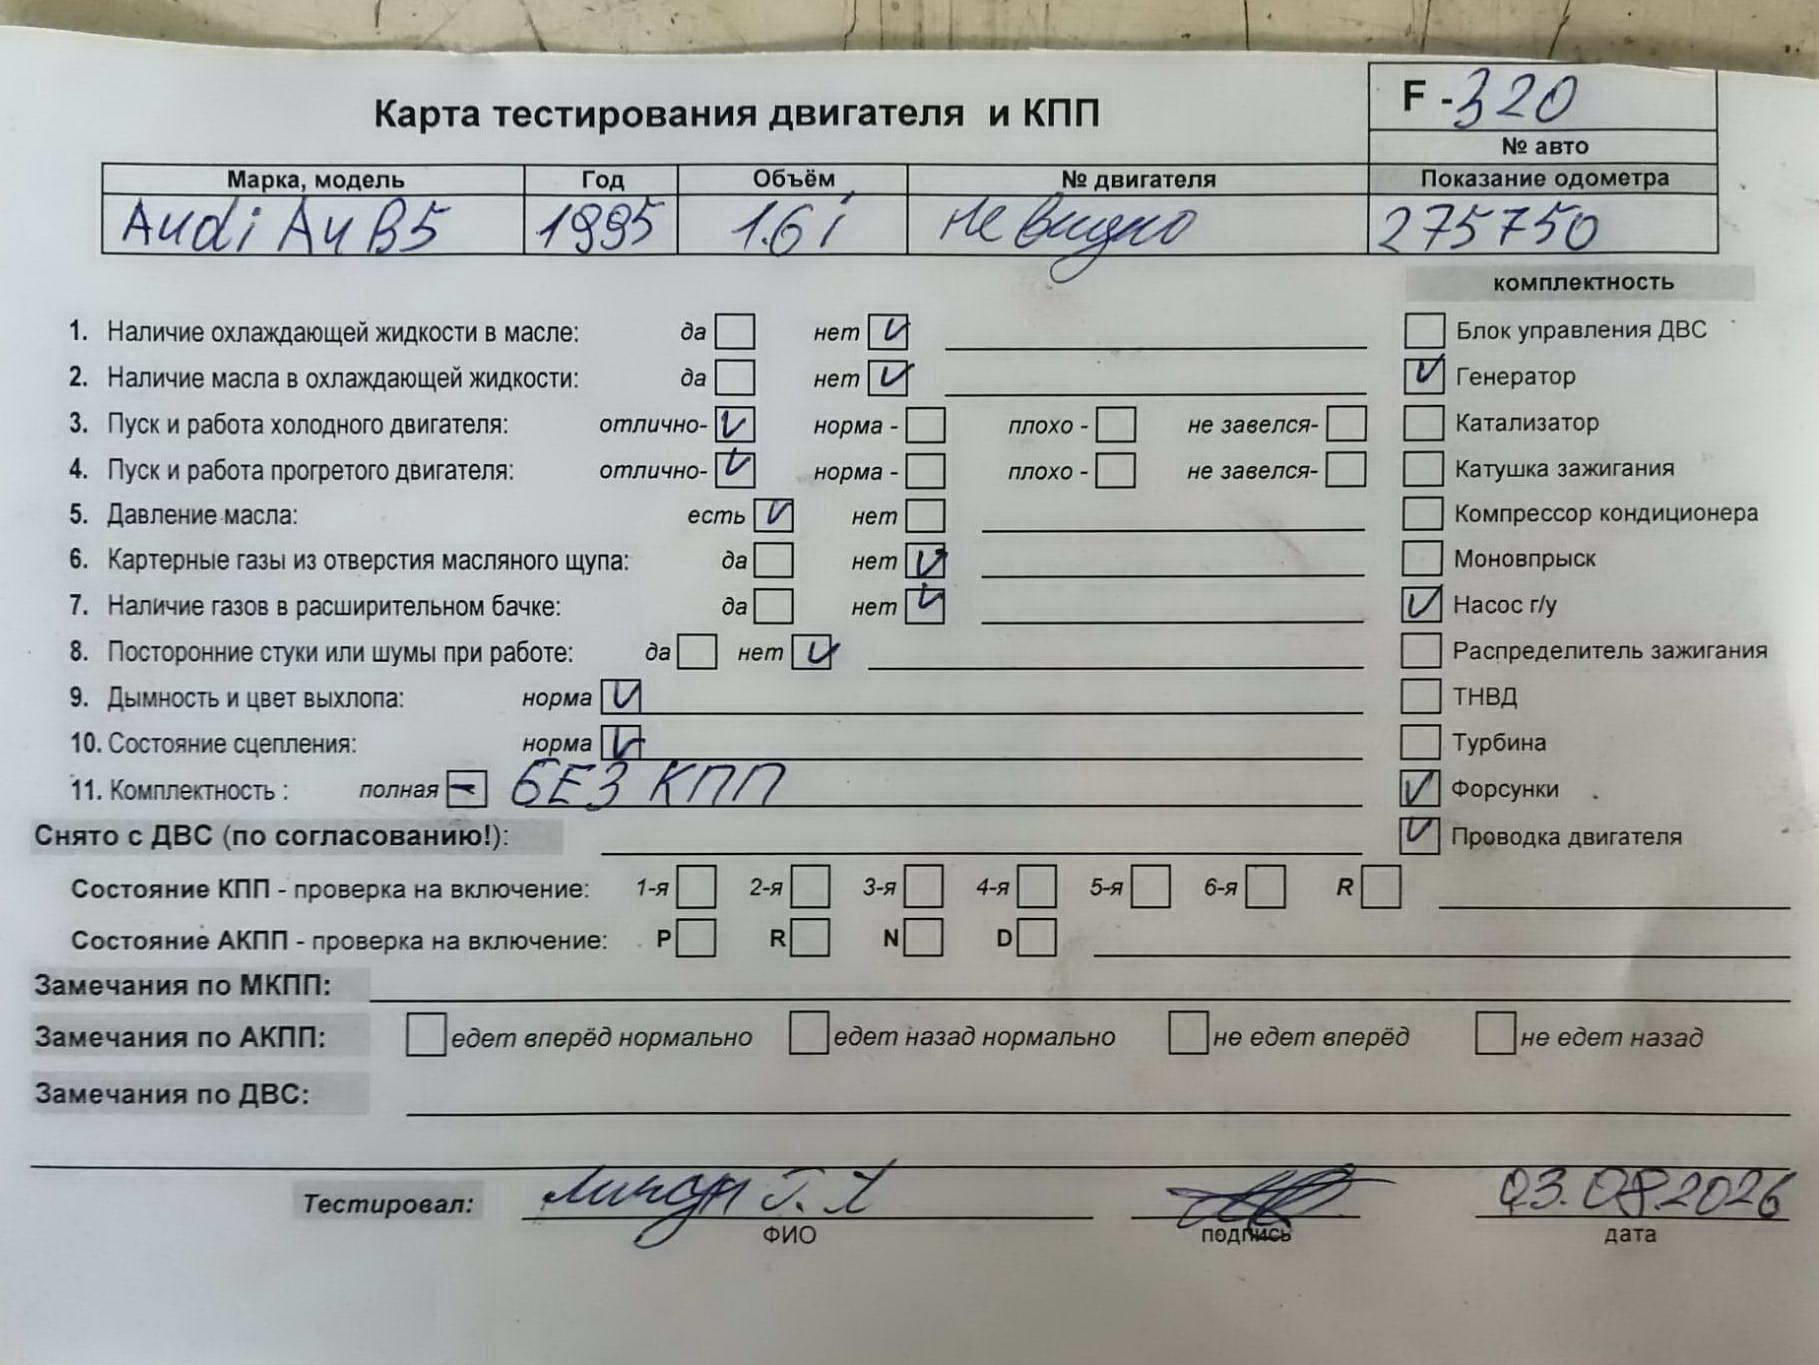 Карта тестирования двигателя и КПП
F - 320
№ авто
Марка, модель Год Объём № двигателя Показание одометра
Audi A4 B5 1995 1.6i не видно 275750
комплектность
1. Наличие охлаждающей жидкости в масле: да нет V
Блок управления ДВС
2. Наличие масла в охлаждающей жидкости: да нет V
V Генератор
3. Пуск и работа холодного двигателя: отлично- V норма - плохо - не завелся-
Катализатор
4. Пуск и работа прогретого двигателя: отлично- V норма - плохо - не завелся-
Катушка зажигания
5. Давление масла: есть V нет
Компрессор кондиционера
6. Картерные газы из отверстия масляного щупа: да нет V
Моновпрыск
7. Наличие газов в расширительном бачке: да нет V
V Насос г/у
8. Посторонние стуки или шумы при работе: да нет V
Распределитель зажигания
9. Дымность и цвет выхлопа: норма V
ТНВД
10. Состояние сцепления: норма V
Турбина
11. Комплектность : полная – БЕЗ КПП
V Форсунки
Снято с ДВС (по согласованию!):
V Проводка двигателя
Состояние КПП - проверка на включение: 1-я 2-я 3-я 4-я 5-я 6-я R
Состояние АКПП - проверка на включение: P R N D
Замечания по МКПП:
Замечания по АКПП: едет вперёд нормально едет назад нормально не едет вперёд не едет назад
Замечания по ДВС:
Тестировал: 03.08.2026
ФИО подпись дата